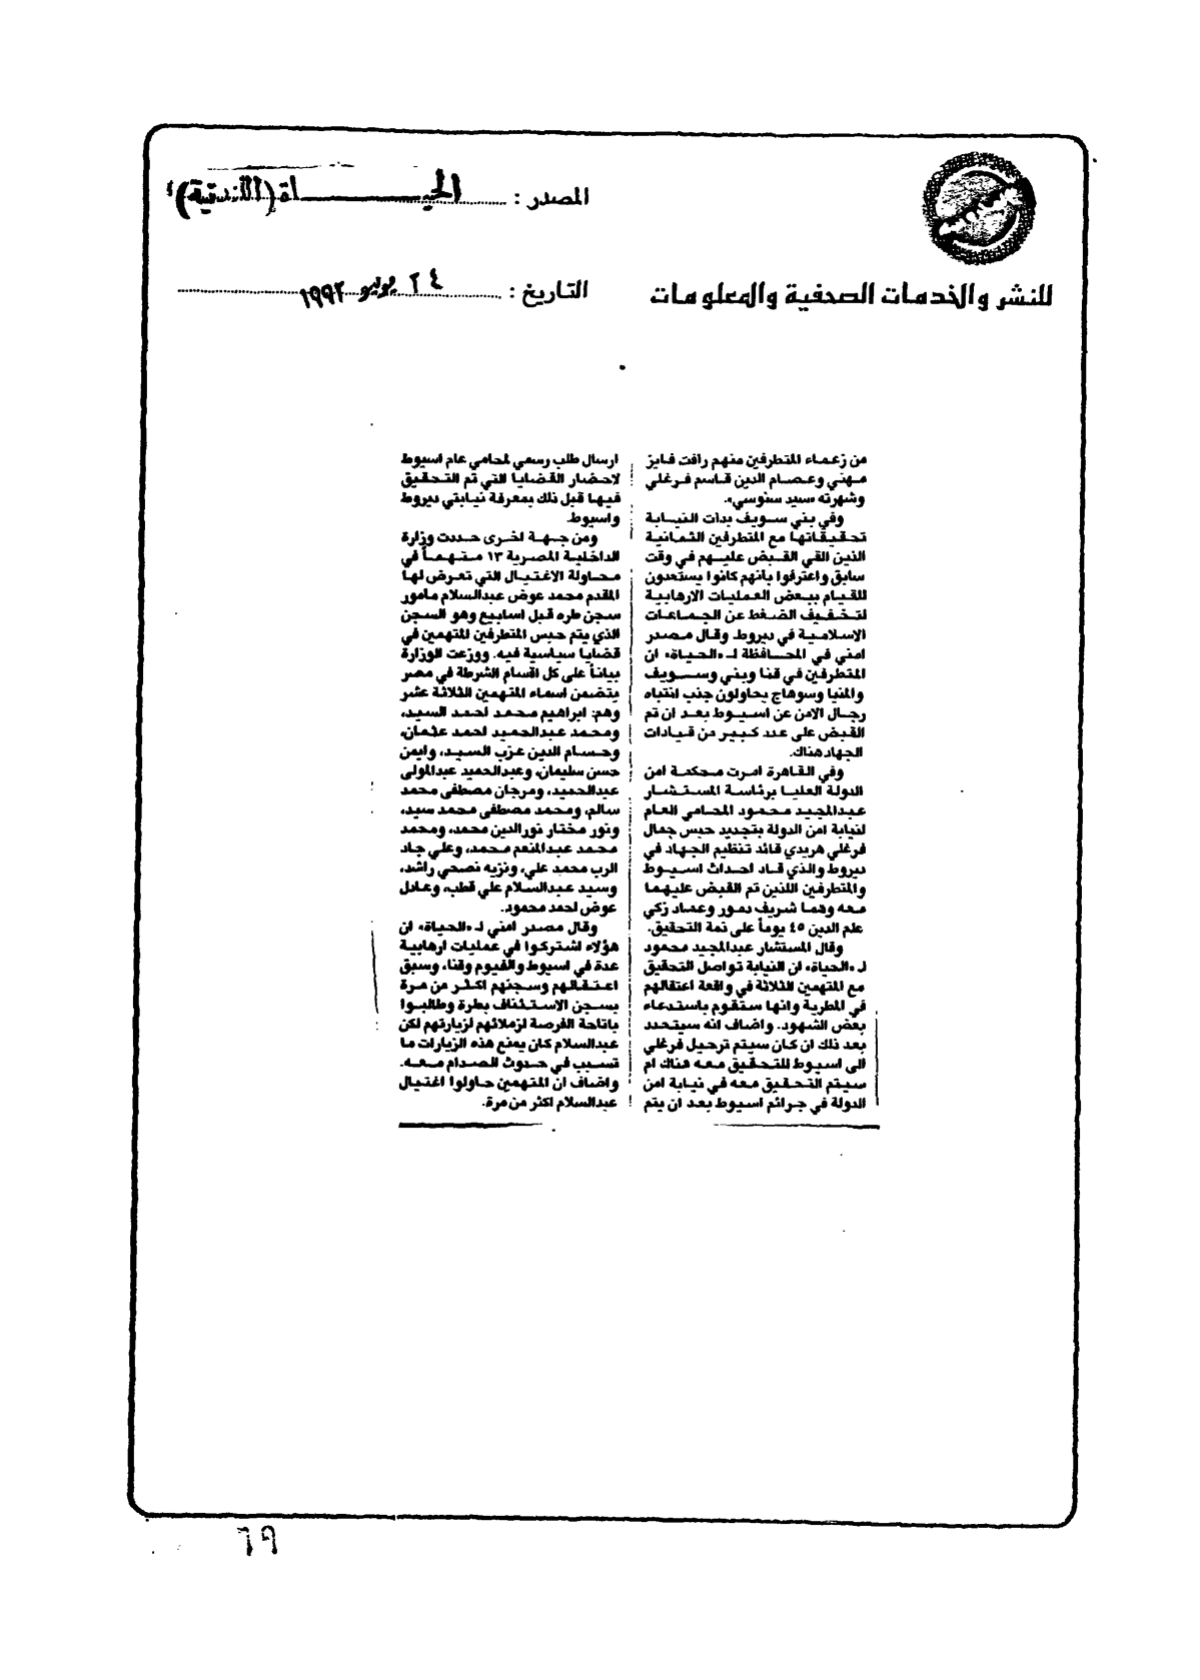 المصدر : الحيـــــــاة (اللندنية)
للنشر والخدمات الصحفية والمعلومات
التاريخ : ٢٤ يونيو ١٩٩٢
من زعماء المتطرفين منهم رافت فايز
مهني وعصام الدين قاسم فرغلي
وشهرته «سيد سنوسي».
وفي بني سويف بدات النيابة
تحقيقاتها مع المتطرفين الثمانية
الذين القي القبض عليهم في وقت
سابق واعترفوا بانهم كانوا يستعدون
للقيام ببعض العمليات الارهابية
لتخفيف الضغط عن الجماعات
الاسلامية في ديروط. وقال مصدر
امني في المحافظة لـ «الحياة» ان
المتطرفين في قنا وبني وسويف
والمنيا وسوهاج يحاولون جنب انتباه
رجال الامن عن اسيوط بعد ان تم
القبض على عدد كبير من قيادات
الجهاد هناك.
وفي القاهرة امرت محكمة امن
الدولة العليا برئاسة المستشار
عبدالمجيد محمود المحامي العام
لنيابة امن الدولة بتجديد حبس جمال
فرغلي هريدي قائد تنظيم الجهاد في
ديروط والذي قاد احداث اسيوط
والمتطرفين اللذين تم القبض عليهما
معه وهما شريف دمور وعماد زكي
علم الدين ٤٥ يوماً على ذمة التحقيق.
وقال المستشار عبدالمجيد محمود
لـ «الحياة» ان النيابة تواصل التحقيق
مع المتهمين الثلاثة في واقعة اعتقالهم
في المطرية وانها ستقوم باستدعاء
بعض الشهود. واضاف انه سيتحدد
بعد ذلك ان كان سيتم ترحيل فرغلي
الى اسيوط للتحقيق معه هناك ام
سيتم التحقيق معه في نيابة امن
الدولة في جرائم اسيوط بعد ان يتم
ارسال طلب رسمي لمحامي عام اسيوط
لاحضار القضايا التي تم التحقيق
فيها قبل ذلك بمعرفة نيابتي ديروط
واسيوط.
ومن جهة اخرى حددت وزارة
الداخلية المصرية ١٣ متهماً في
محاولة الاغتيال التي تعرض لها
المقدم محمد عوض عبدالسلام مامور
سجن طره قبل اسابيع وهو السجن
الذي يتم حبس المتطرفين المتهمين في
قضايا سياسية فيه. ووزعت الوزارة
بياناً على كل اقسام الشرطة في مصر
يتضمن اسماء المتهمين الثلاثة عشر
وهم: ابراهيم محمد احمد السيد،
ومحمد عبدالحميد احمد عثمان،
وحسام الدين عزب السيد، وايمن
حسن سليمان، وعبدالحميد عبدالمولى
عبدالحميد، ومرجان مصطفى محمد
سالم، ومحمد مصطفى محمد سيد،
ونور مختار نورالدين محمد، ومحمد
محمد عبدالمنعم محمد، وعلي جاد
الرب محمد علي، ونزيه نصحي راشد،
وسيد عبدالسلام علي قطب، وعادل
عوض احمد محمود.
وقال مصدر امني لـ «الحياة» ان
هؤلاء اشتركوا في عمليات ارهابية
عدة في اسيوط والفيوم وقنا، وسبق
اعتقالهم وسجنهم اكثر من مرة
بسجن الاستئناف بطرة وطالبوا
باتاحة الفرصة لزملائهم لزيارتهم لكن
عبدالسلام كان يمنع هذه الزيارات ما
تسبب في حدوث الصدام معه.
واضاف ان المتهمين حاولوا اغتيال
عبدالسلام اكثر من مرة.
٦٩